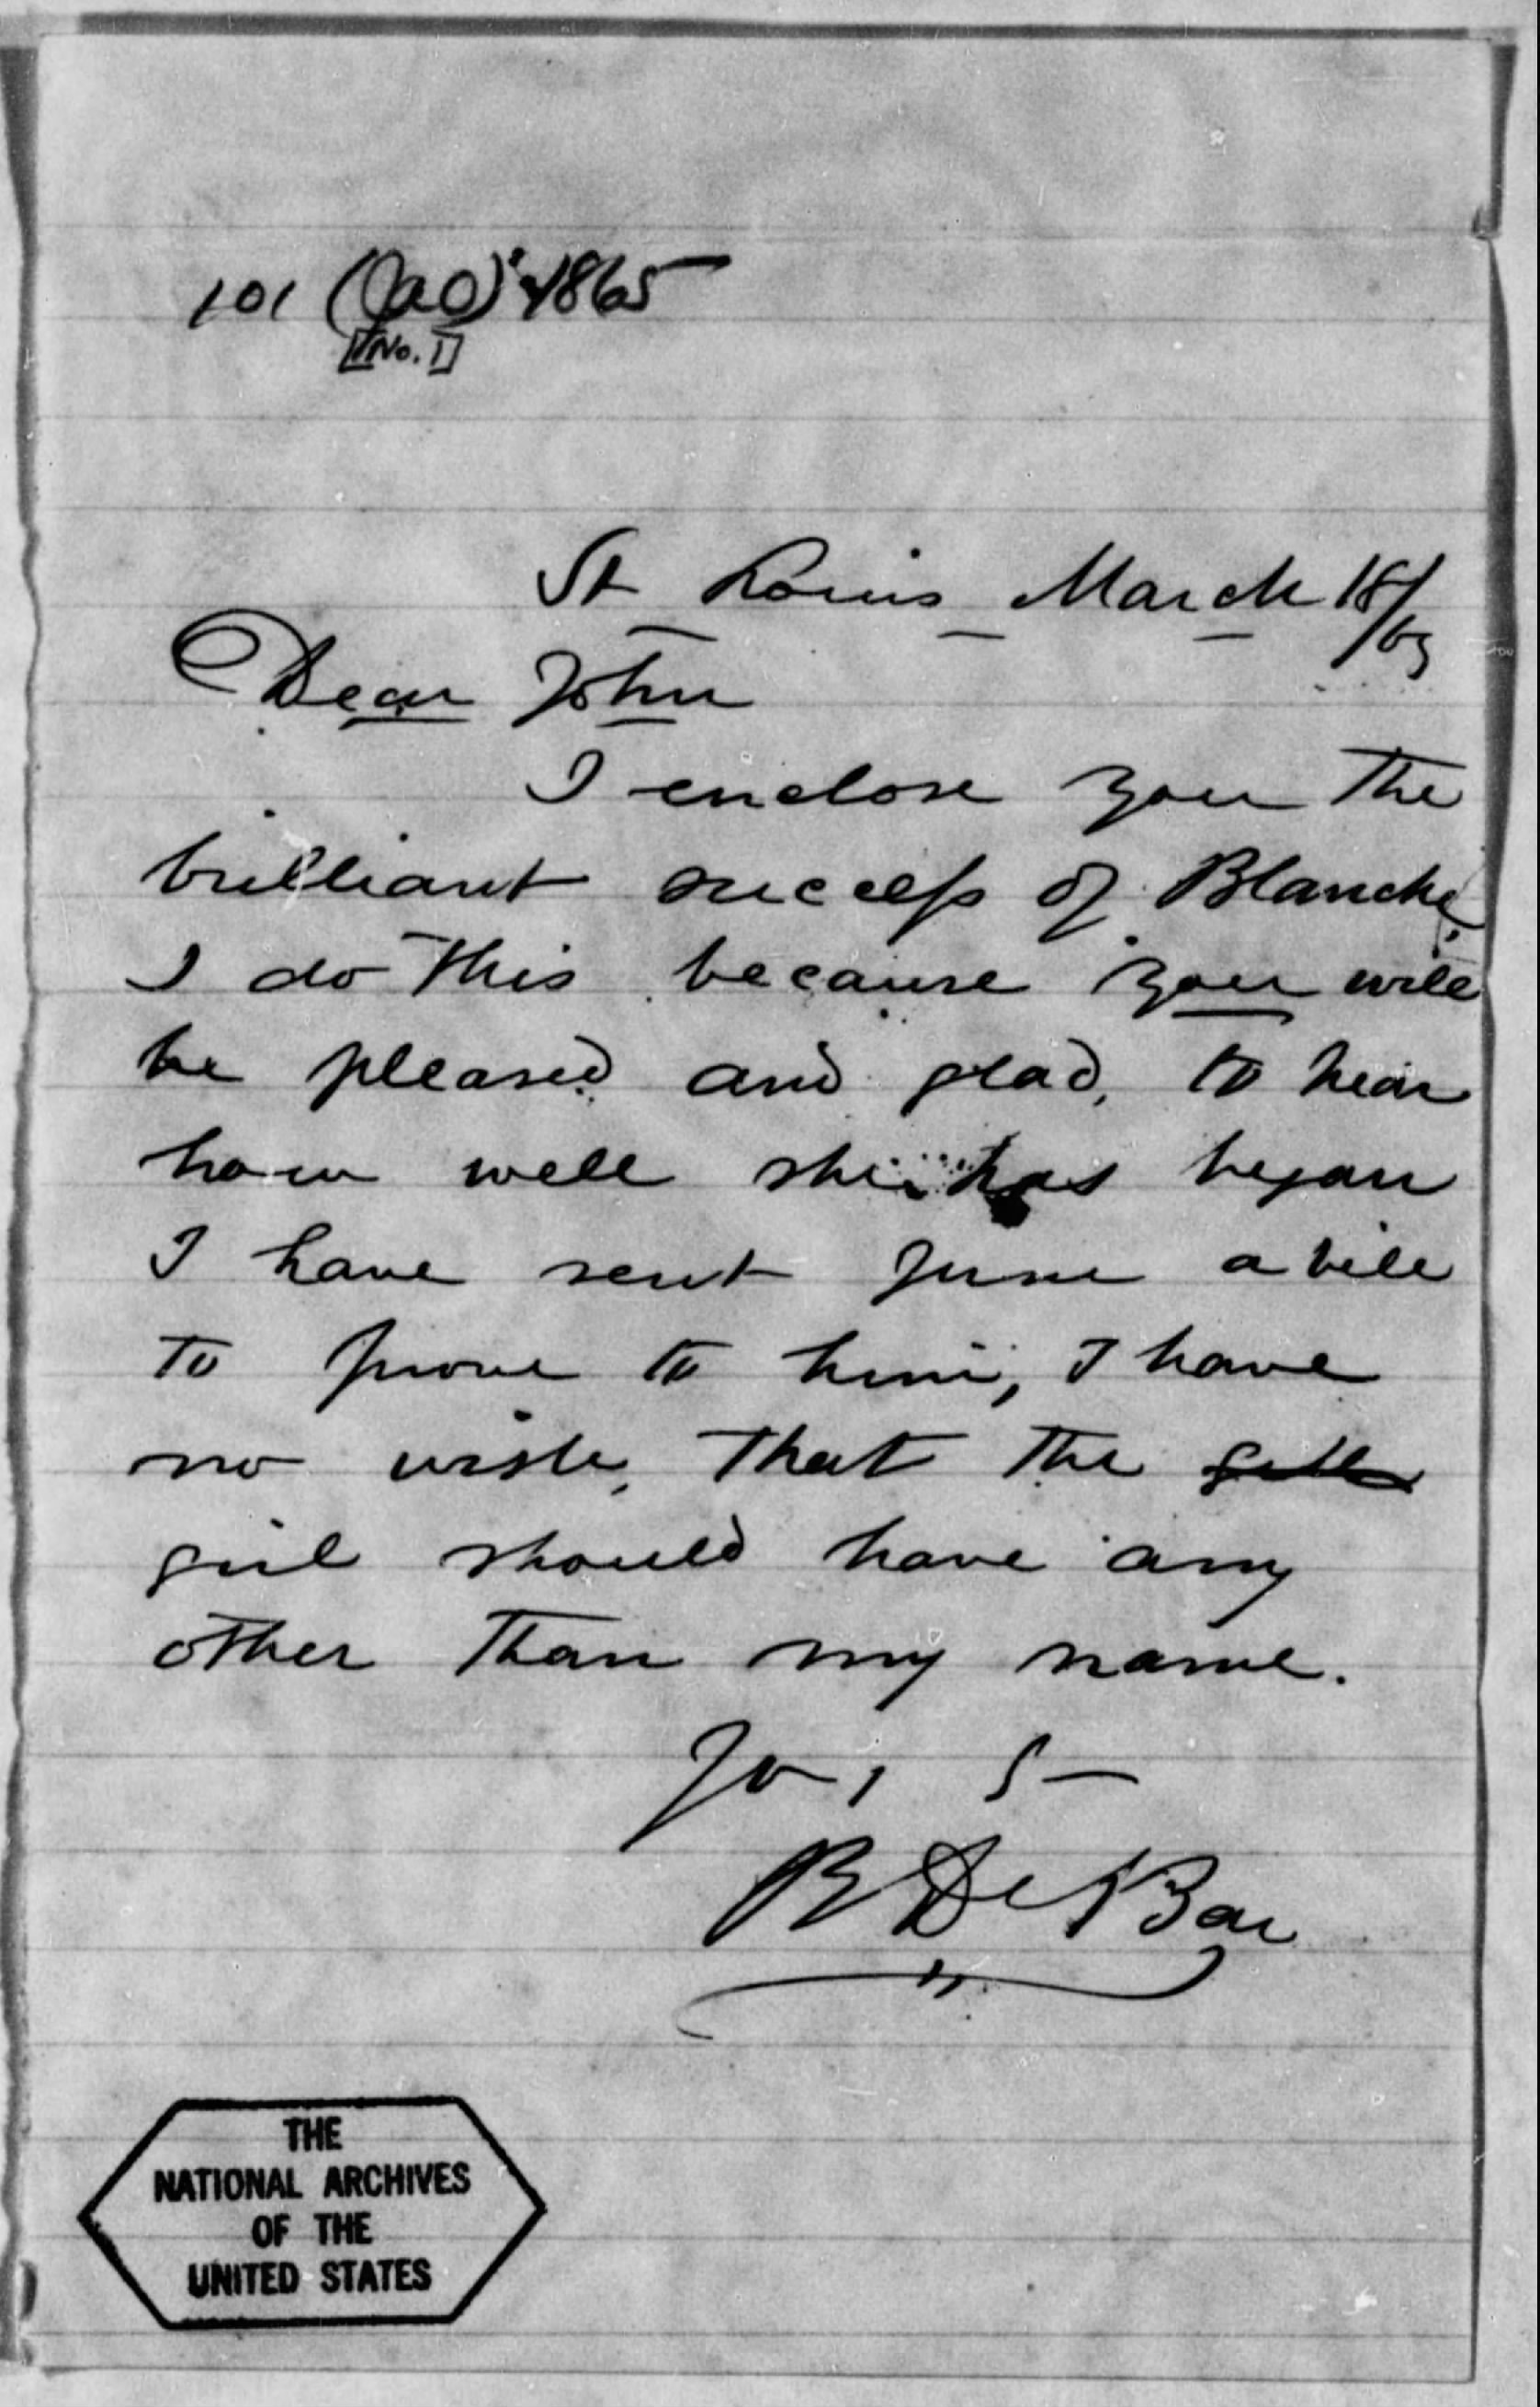 101 (JAO) 1865
[No. 1]
St Louis March 18/65
Dear John
I enclose you the
brilliant success of Blanche
I do this because you will
be pleased and glad, to hear
how well she has began
I have sent June a bill
to prove to him, I have
no wish, that the
girl should have any
other than my name.
Yo, s
B De Bar
THE
NATIONAL ARCHIVES
OF THE
UNITED STATES